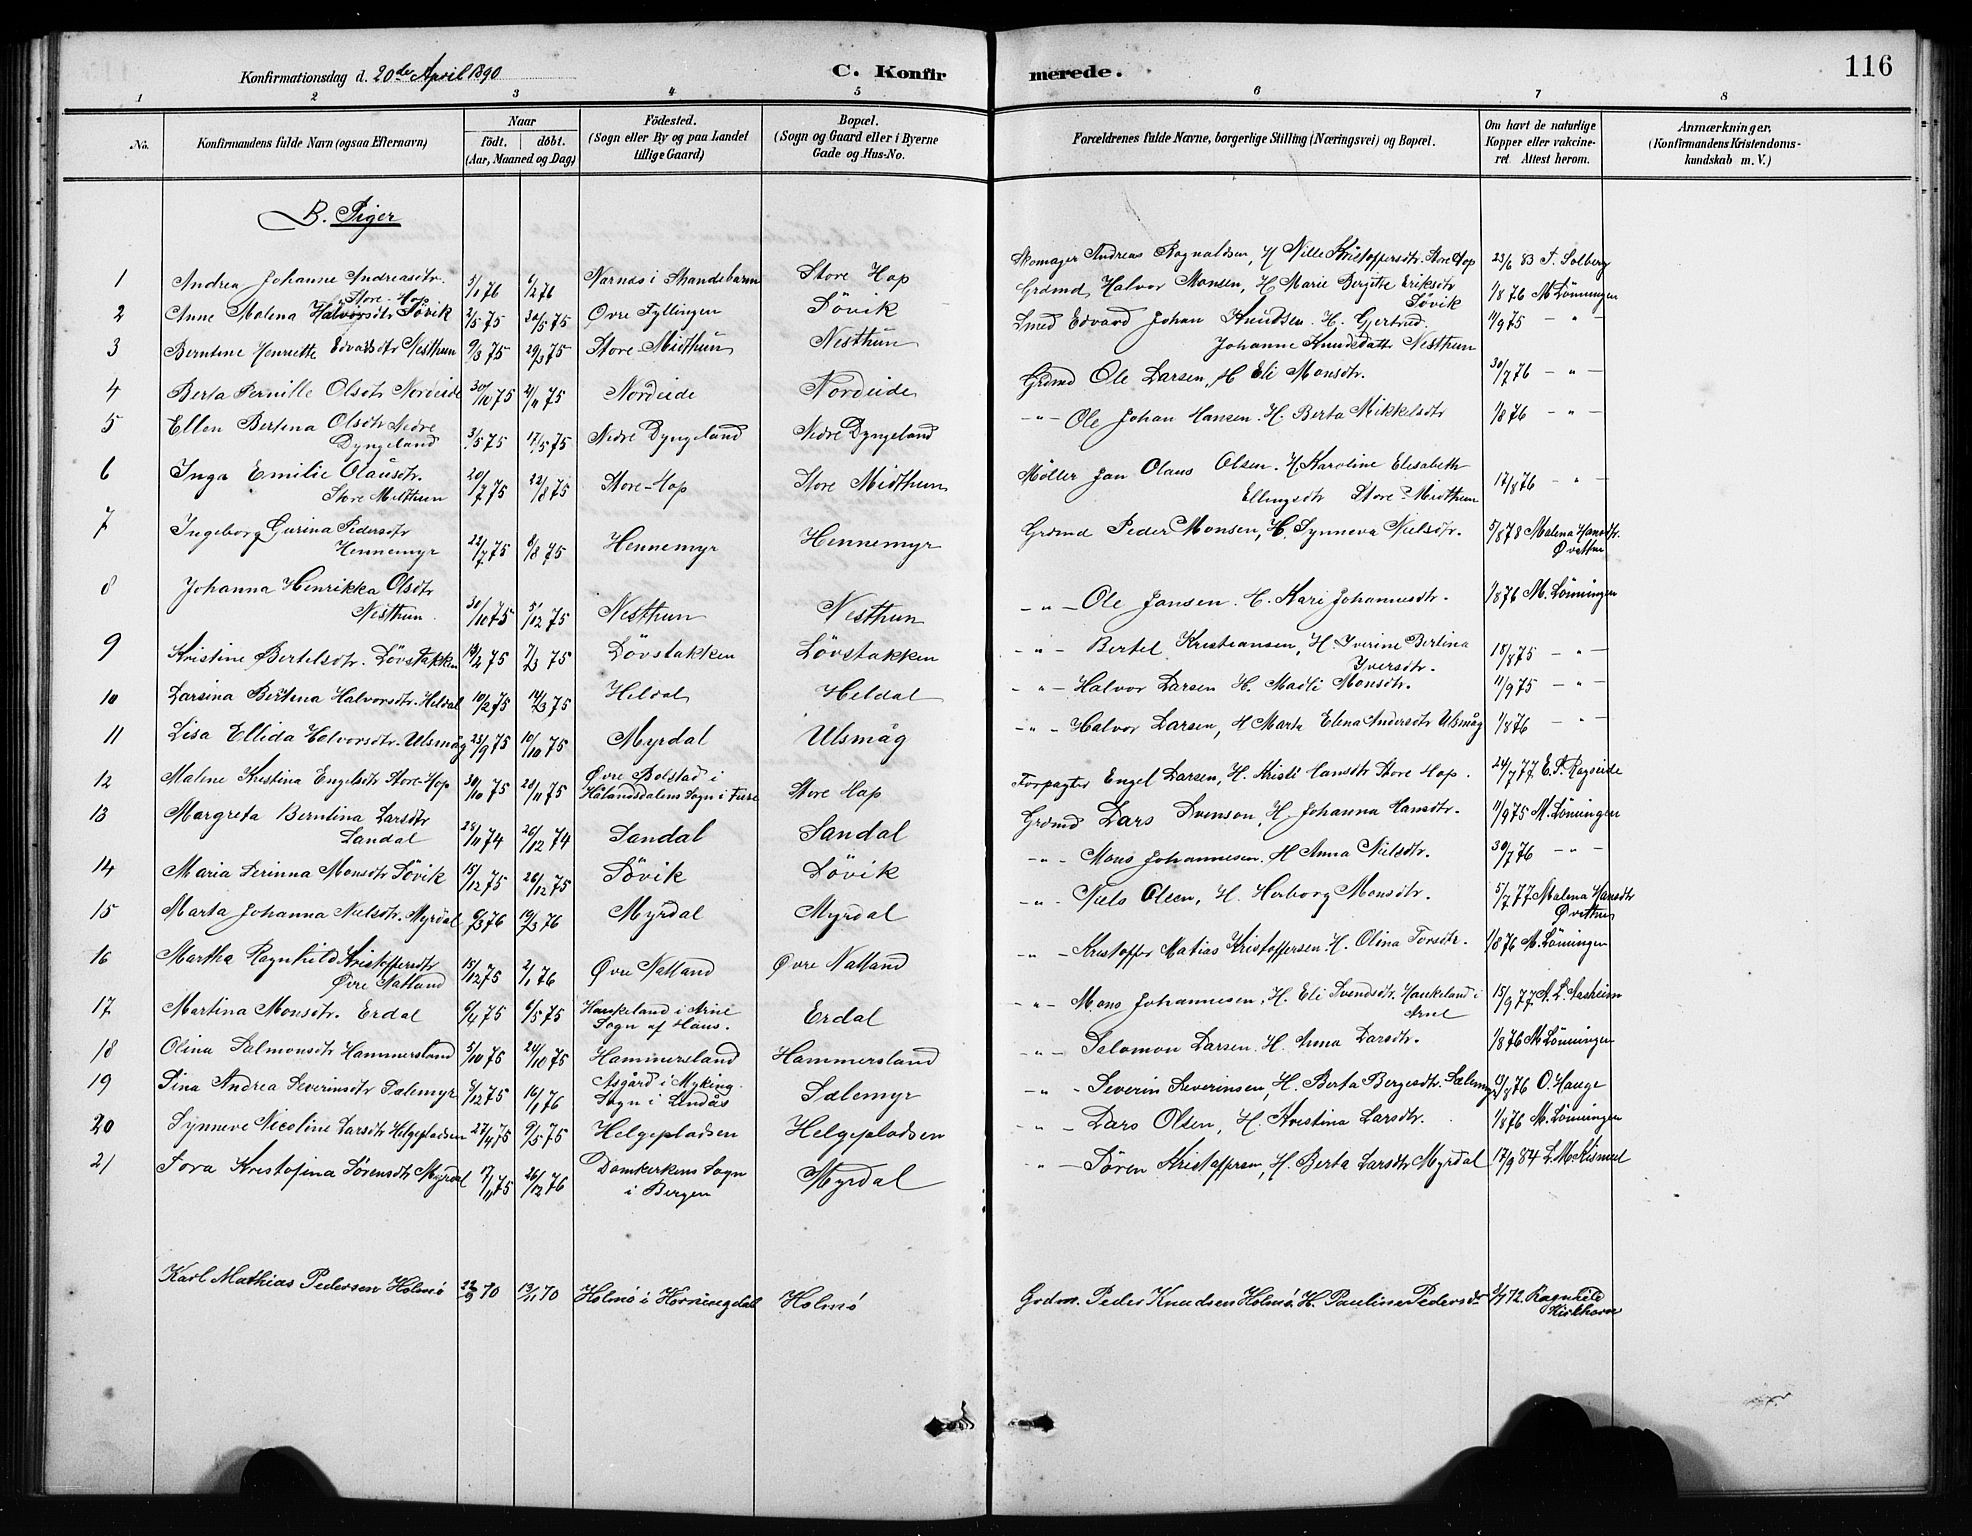 Konfirmationsdag d. 20de April 1890
C. Konfirmerede.
116
1 2 3 4 5 6 7 8
No.
Konfirmandens fulde Navn (ogsaa Efternavn)
Naar
født. døbt.
(Aar, Maaned og Dag)
Fødested.
(Sogn eller By og paa Landet
tillige Gaard)
Bopæl.
(Sogn og Gaard eller i Byerne
Gade og Hus-No.
Forældrenes fulde Navne, borgerlige Stilling (Næringsvei) og Bopæl.
Om havt de naturlige
Kopper eller vakcine-
ret. Attest herom.
Anmærkninger.
(Konfirmandens Kristendoms-
kundskab m. V.)
B. Piger
1 Andrea Johanne Andreasdtr. Store-Hop 5/1 76 6/2 76 Narnes i Strandebarm Store Hop Skomager Andreas Ragnaldsen, H Nille Kristoffersdtr Store Hop 23/6 83 T. Solberg
2 Anne Malena Halvorsdtr Søvik 2/5 75 30/5 75 Øvre Fyllingen Søvik Grdmd Halvor Monsen, H. Marie Bergitte Eriksdtr Søvik 1/8 76 M Lönningen
3 Berntine Henriette Edvardsdtr Nesthun 9/3 75 29/3 75 Store-Midthun Nesthun Smed Edvard Johan Knudsen. H. Gjertrud Johanne Knudsdatter Nesthun 11/9 75 — " —
4 Berta Pernille Olsdtr Nordeide 30/10 75 21/11 75 Nordeide Nordeide Grdmd Ole Larsen, H Eli Monsdtr. 30/7 76 — " —
5 Ellen Bertina Olsdtr Nedre Dyngeland 3/5 75 17/5 75 Nedre Dyngeland Nedre Dyngeland — " — Ole Johan Hansen. H. Berta Mikkelsdtr 1/8 76 — " —
6 Inga Emilie Olausdtr. Store Midthun 20/7 75 22/8 75 Store-Hop Store Midthun Møller Jan Olaus Olsen. H. Karoline Elisabeth Ellingsdtr Store-Midthun 12/8 76 — " —
7 Ingeborg Gurina Pedersdtr Hennemyr 22/7 75 8/8 75 Hennemyr Hennemyr Grdmd Peder Monsen, H. Synneva Nielsdtr. 5/8 78 Malena Hansdtr. Øvattne
8 Johanna Henrikka Olsdtr Nesthun 30/10 75 5/12 75 Nesthun Nesthun — " — Ole Jansen. H. Kari Johannesdtr. 1/8 76 M. Lönningen
9 Kristine Bertelsdtr. Løvstakken 14/2 75 7/3 75 Løvstakken Løvstakken — " — Bertel Kristiansen, H. Iverine Bertina Iversdtr. 18/8 75 — " —
10 Larsina Bertina Halvorsdtr. Heldal 10/2 75 14/3 75 Heldal Heldal — " — Halvor Larsen H. Madli Monsdtr. 11/9 75 — " —
11 Lisa Ellida Halvorsdtr. Ulsmåg 23/9 75 10/10 75 Myrdal Ulsmåg — " — Halvor Larsen, H Marta Elena Andersdtr Ulsmåg 1/8 76 — " —
12 Malene Kristina Engelsdtr Store-Hop 30/10 75 28/11 75 Øvre Bolstad i Hålandsdalens Sogn i Fuse Store Hop Forpagter Engel Larsen, H. Kristi Hansdtr Store Hop. 24/7 77 E. P. Rageide
13 Margreta Berntina Larsdtr Sandal 28/11 74 26/12 74 Sandal Sandal Grdmd Lars Svenson, H. Johanna Hansdtr. 11/9 75 M. Löningen
14 Maria Serinna Monsdtr Søvik 15/12 75 26/12 75 Søvik Søvik — " — Mons Johannesen. H Anna Nielsdtr. 30/7 76 — " —
15 Marta Johanna Nielsdtr. Myrdal 6/3 76 19/3 76 Myrdal Myrdal — " — Niels Olsen, H. Herborg Monsdtr. 5/7 77 Malena Hansdtr Øvattne
16 Martha Ragnhild Kristoffersdtr Øvre Natland 15/12 75 2/1 76 Øvre Natland Øvre Natland — " — Kristoffer Matias Kristoffersen. H. Olina Torsdtr. 1/8 76 M. Löningen
17 Martina Monsdtr. Erdal 6/4 75 6/5 75 Haukeland i Arne Sogn af Haus. Erdal — " — Mons Johannesen, H. Eli Svendsdtr. Haukeland i Arne 15/9 77 A. L. Aasheim
18 Olina Salmonsdtr Hammersland 5/10 75 24/10 75 Hammersland Hammersland — " — Salomon Larsen. H. Anna Larsdtr. 1/8 76 M Lönningen
19 Sina Andrea Severinsdtr Sælemyr 5/12 75 16/1 76 Asgård i Myking Sogn i Lindås Sælemyr — " — Severin Severinsen, H. Berta Bergesdtr. Sælemyr 8/8 76 O. Hauge
20 Synneve Nicoline Larsdtr Helgepladsen 27/4 75 9/5 75 Helgepladsen Helgepladsen — " — Lars Olsen, H. Kristina Larsdtr. 1/8 76 M. Lönningen
21 Tora Kristofina Sørensdtr Myrdal 17/11 75 26/12 76 Domkirkens Sogn i Bergen Myrdal — " — Søren Kristoffersen, H. Berta Larsdtr Myrdal 17/9 84 L. M. Kismul
Karl Mathias Pedersen Holmø 22/9 70 13/11 70 Holmø i Horningdal Holmø Grdm. Peder Knudsen Holmø. H. Pauline Pedersdr 9/7 72. Ragnhild Kirkhorn